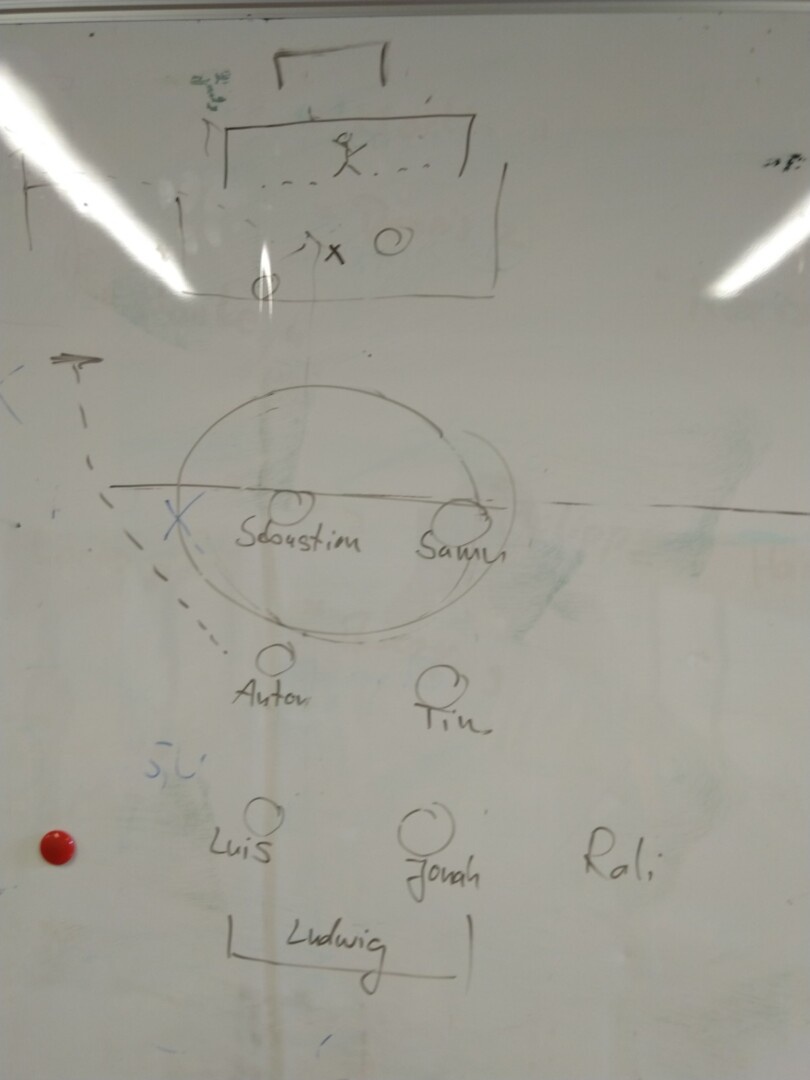 Sebastian Samu
Anton Tim
Luis Jonah Rali
Ludwig